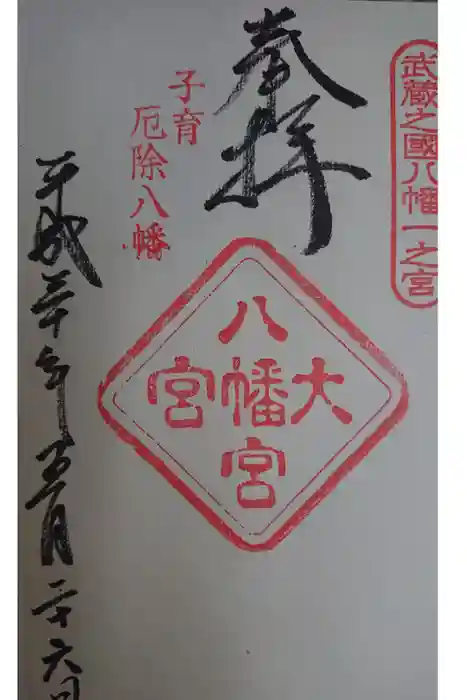 武蔵之國八幡一之宮
奉拝
子育
厄除八幡
大宮
八幡宮
平成三十年五月二十六日